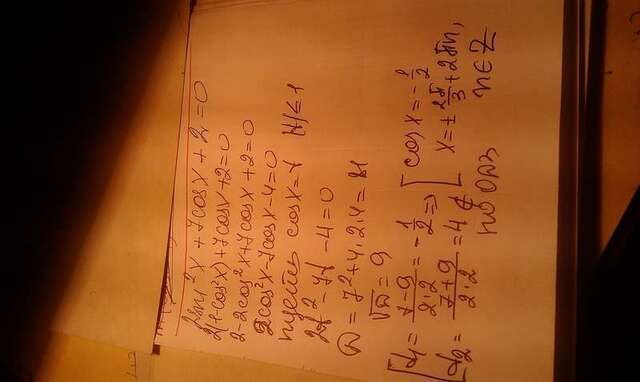 2sin²x + 7cosx + 2 = 0
2(1-cos²x)+7cosx+2=0
2-2cos²x+7cosx+2=0
2cos²x-7cosx-4=0
пусть cosx=t |t|≤1
2t²-7t-4=0
D=7²+4·2·4=81
√D=9
[t₁=(7-9)/(2·2)=-1/2 ⇒ [cosx=-1/2
[t₂=(7+9)/(2·2)=4 ∉ [x=±2π/3+2πn,
по ОДЗ n∈Z